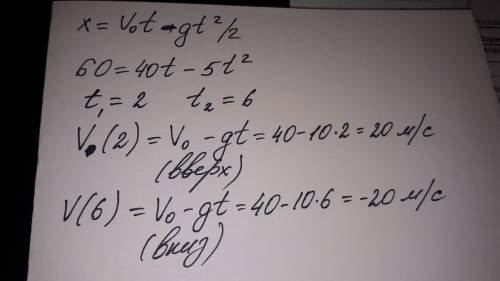 x = V₀t - gt²/2
60 = 40t - 5t²
t₁ = 2 t₂ = 6
V(2) = V₀ - gt = 40 - 10·2 = 20 м/с
(вверх)
V(6) = V₀ - gt = 40 - 10·6 = -20 м/с
(вниз)